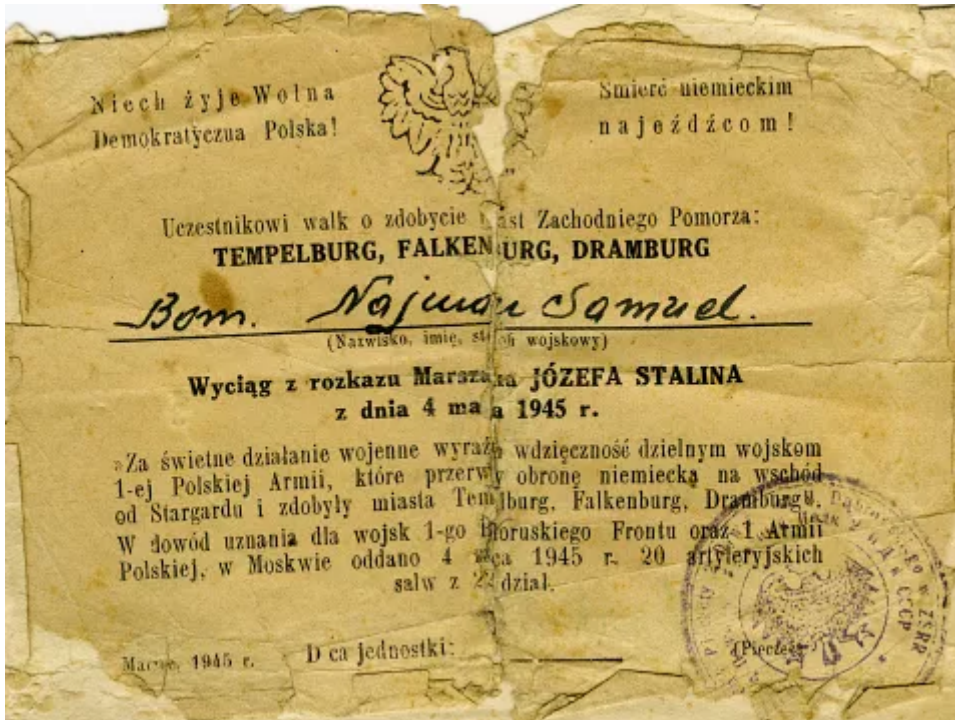 Niech żyje Wolna
Demokratyczua Polska!
Śmierć niemieckim
najeźdźcom!
Uczestnikowi walk o zdobycie miast Zachodniego Pomorza:
TEMPELBURG, FALKENBURG, DRAMBURG
Bom. Najman Samuel.
(Nazwisko, imię, stopień wojskowy)
Wyciąg z rozkazu Marszałka JÓZEFA STALINA
z dnia 4 marca 1945 r.
„Za świetne działanie wojenne wyrażam wdzięczność dzielnym wojskom
1-ej Polskiej Armii, które przerwały obronę niemiecką na wschód
od Stargardu i zdobyły miasta Tempelburg, Falkenburg, Dramburg".
W dowód uznania dla wojsk 1-go Białoruskiego Frontu oraz 1 Armii
Polskiej, w Moskwie oddano 4 marca 1945 r. 20 artyleryjskich
salw z dział.
Marzec, 1945 r.
D-ca jednostki:
(Pieczęć)
w ZSRR
в СССР